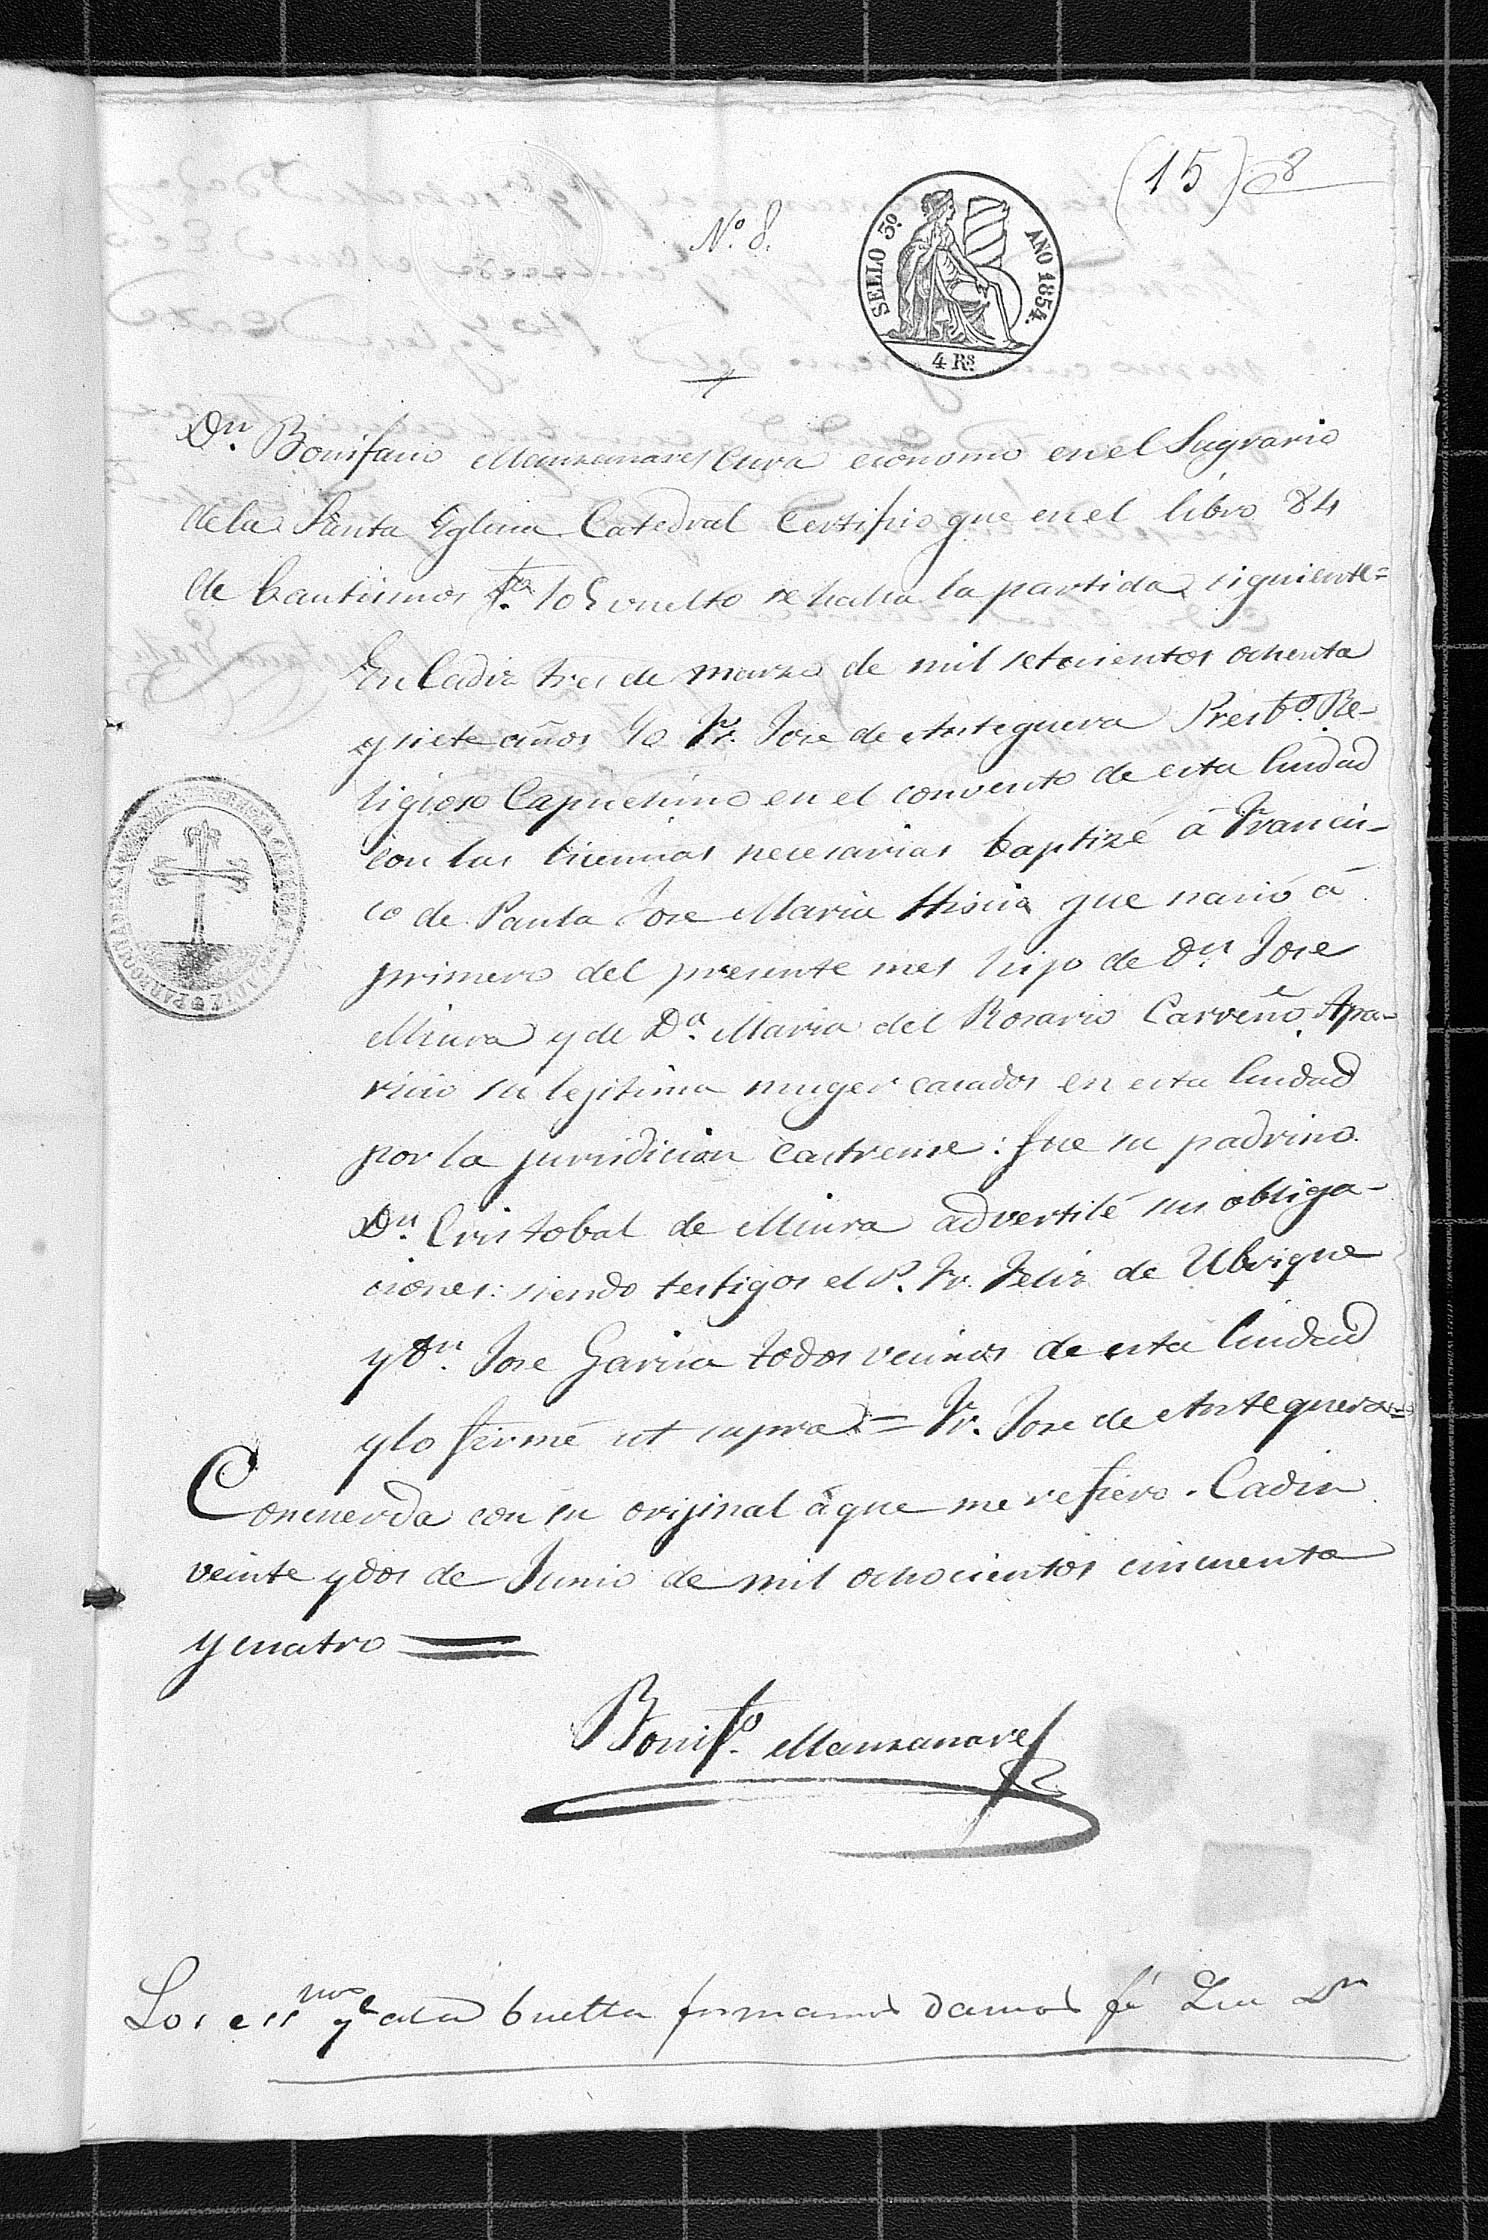 (15) 8
Nº 8.
SELLO 3º AÑO 1854.
4 Rs.
Dn. Bonifacio Manzanares Cura economo en el Sagrario
de la Santa Yglesia Catedral Certifico que en el libro 84
de bautismos fo. 105 vuelto se halla la partida siguiente=
En Cadiz tres de marzo de mil setecientos ochenta
y siete años Yo Fr. Jose de Antequera Presbo. Re-
ligioso Capuchino en el convento de esta Ciudad
con las licencias necesarias baptizé á Francis-
co de Paula Jose Maria que nació á
primero del presente mes hijo de Dn. Jose
Miura y de Da. Maria del Rosario Carreño Apa-
ricio su lejitima muger casados en esta Ciudad
por la jurisdicion castrense: fue su padrino
Dn. Cristobal de Miura advertile sus obliga-
ciones: siendo testigos el P. Fr. Felix de Ubrique
y Dn. Jose Garcia todos vecinos de esta Ciudad
y lo firmé ut supra = Fr. Jose de Antequera=
Concuerda con su orijinal á que me refiero. Cadiz
veinte y dos de Junio de mil ochocientos cincuenta
y cuatro
Bonifo. Manzanares
Los essnos qe a la buelta firmamos damos fé Que Dn